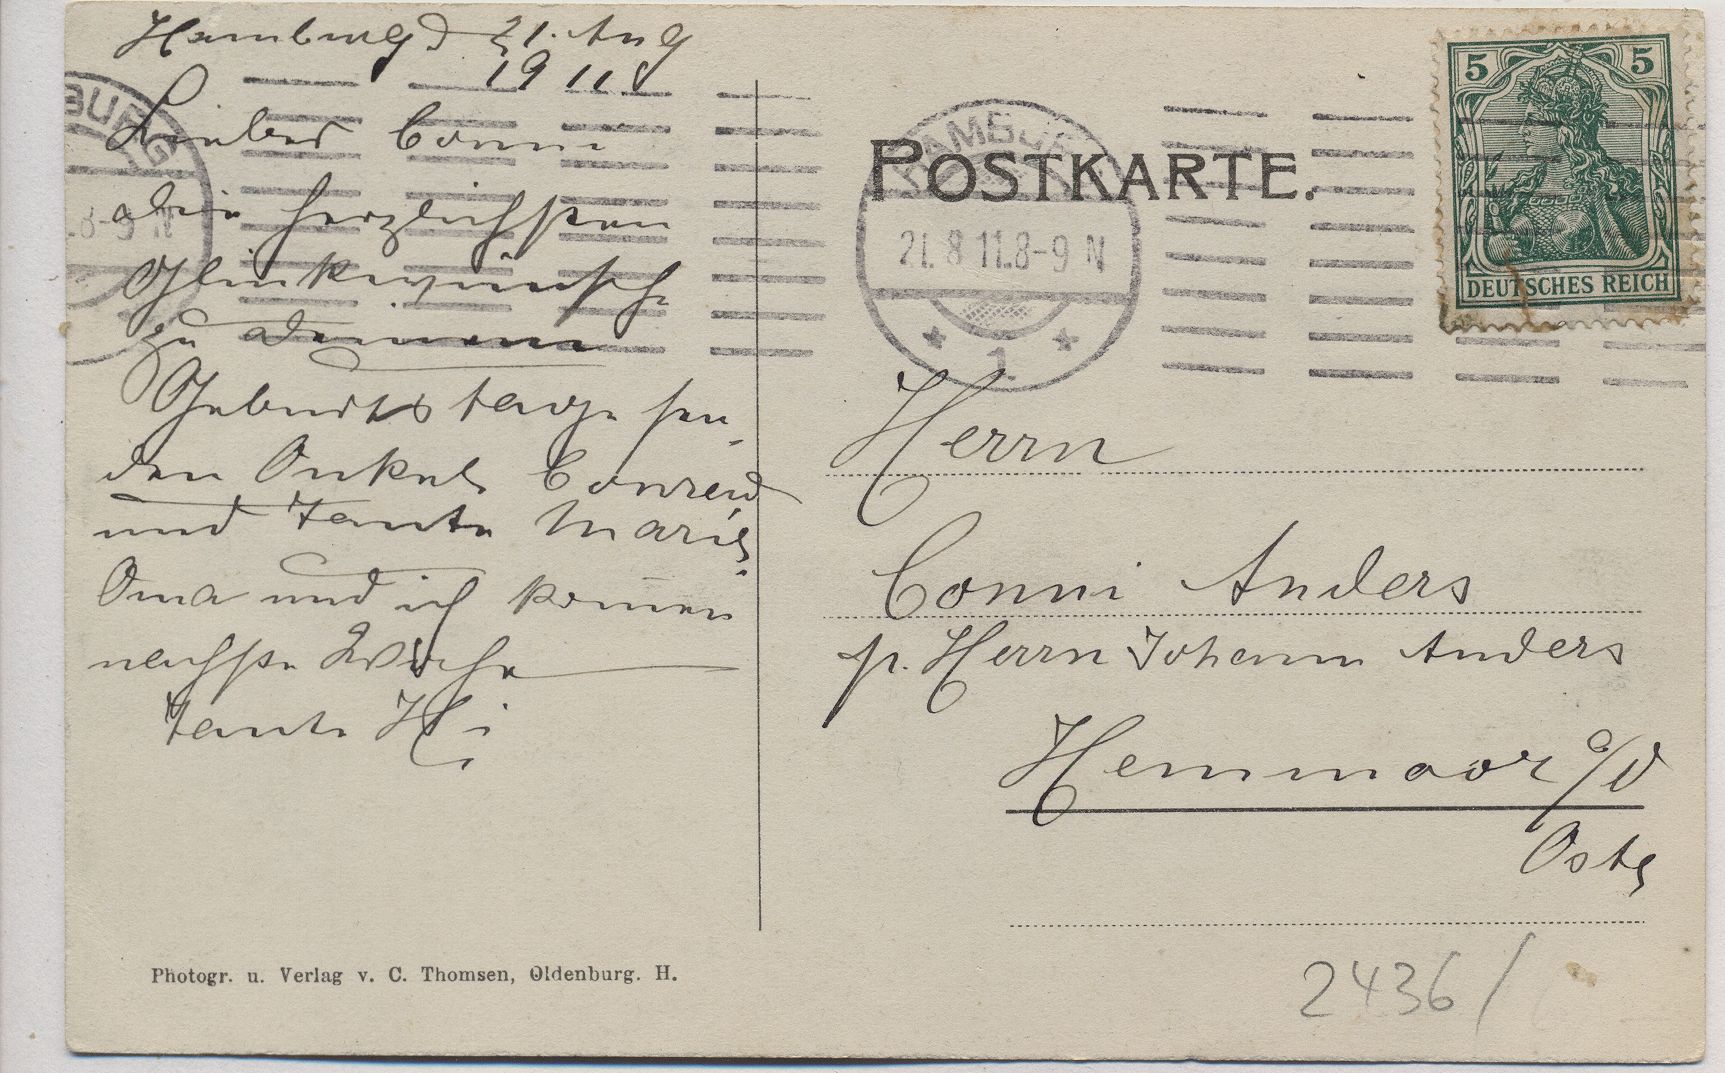 Hamburg d 21. Aug
1911
Lieber Conni
die herzlichsten
Glückwünsche
zu deinem
Geburtstage sen-
den Onkel Conrad
und Tante Marie.
Oma und ich kom̄en
nächste Woche
Tante Hi
Photogr. u. Verlag v. C. Thomsen, Oldenburg. H.
POSTKARTE.
HAMBURG
21. 8 11.8-9 N
* 1. *
BURG
.8-9 N
5 5
DEUTSCHES REICH
Herrn
Conni Anders
p. Herrn Johann Anders
Hemmoor a/d
Oste
2436/